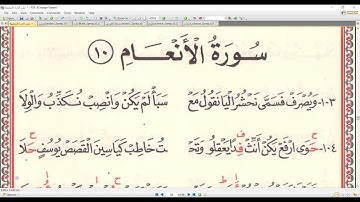 سُورَةُ الْأَنْعَامِ (١٠)
١٠٣- وَيُصْرَفُ فَسَمَّى نَحْشُرُ الْيَا نَقُولُ مَعْ سَبَأْ لَمْ يَكُنْ وَانْصِبْ نُكَذِّبُ وَالْوِلَا
١٠٤- حَوَى ارْفَعْ يَكُنْ أَنِّثْ فِدًا يَعْقِلُو وَتَحْـ ـتُ خَاطِبْ كَيَاسِينَ الْقَصَصْ يُوسُفٍ حَلَا